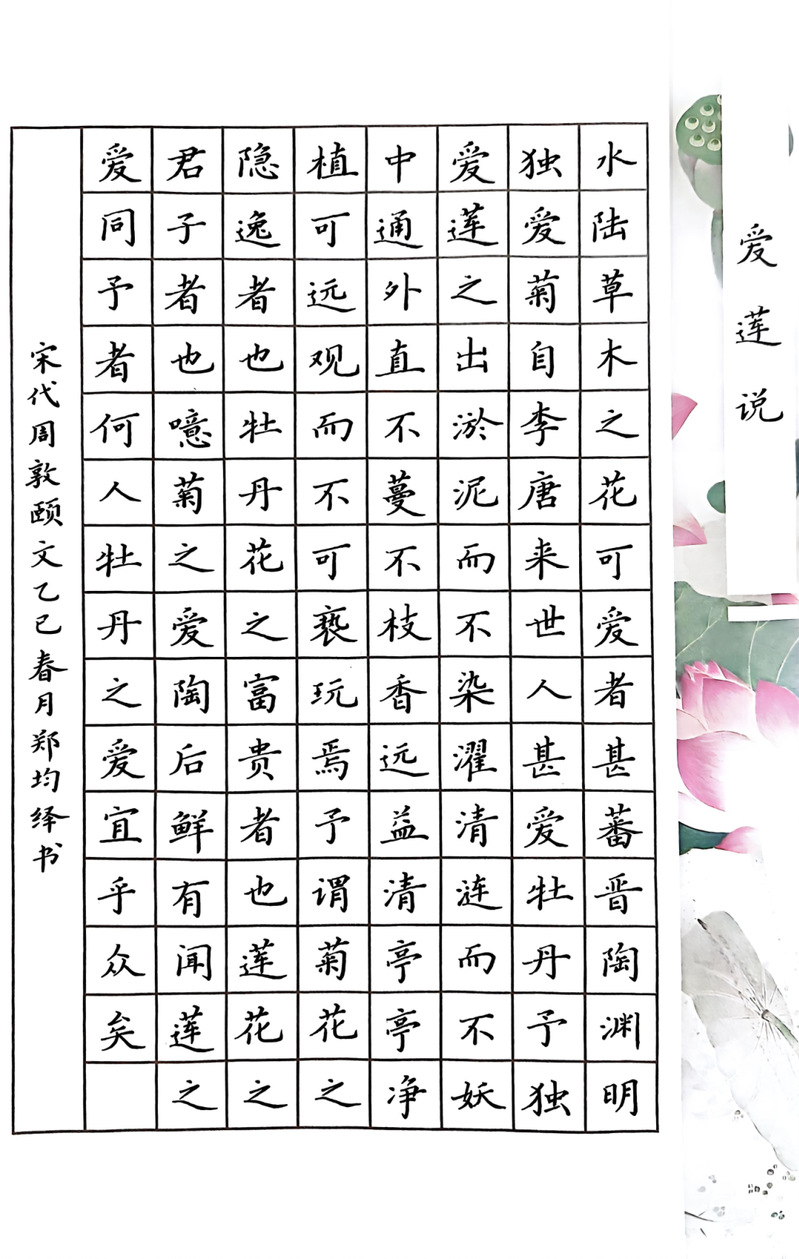 爱莲说
水陆草木之花可爱者甚蕃晋陶渊明
独爱菊自李唐来世人甚爱牡丹予独
爱莲之出淤泥而不染濯清涟而不妖
中通外直不蔓不枝香远益清亭亭净
植可远观而不可亵玩焉予谓菊花之
隐逸者也牡丹花之富贵者也莲花之
君子者也噫菊之爱陶后鲜有闻莲之
爱同予者何人牡丹之爱宜乎众矣
宋代周敦颐文乙巳春月郑均绎书